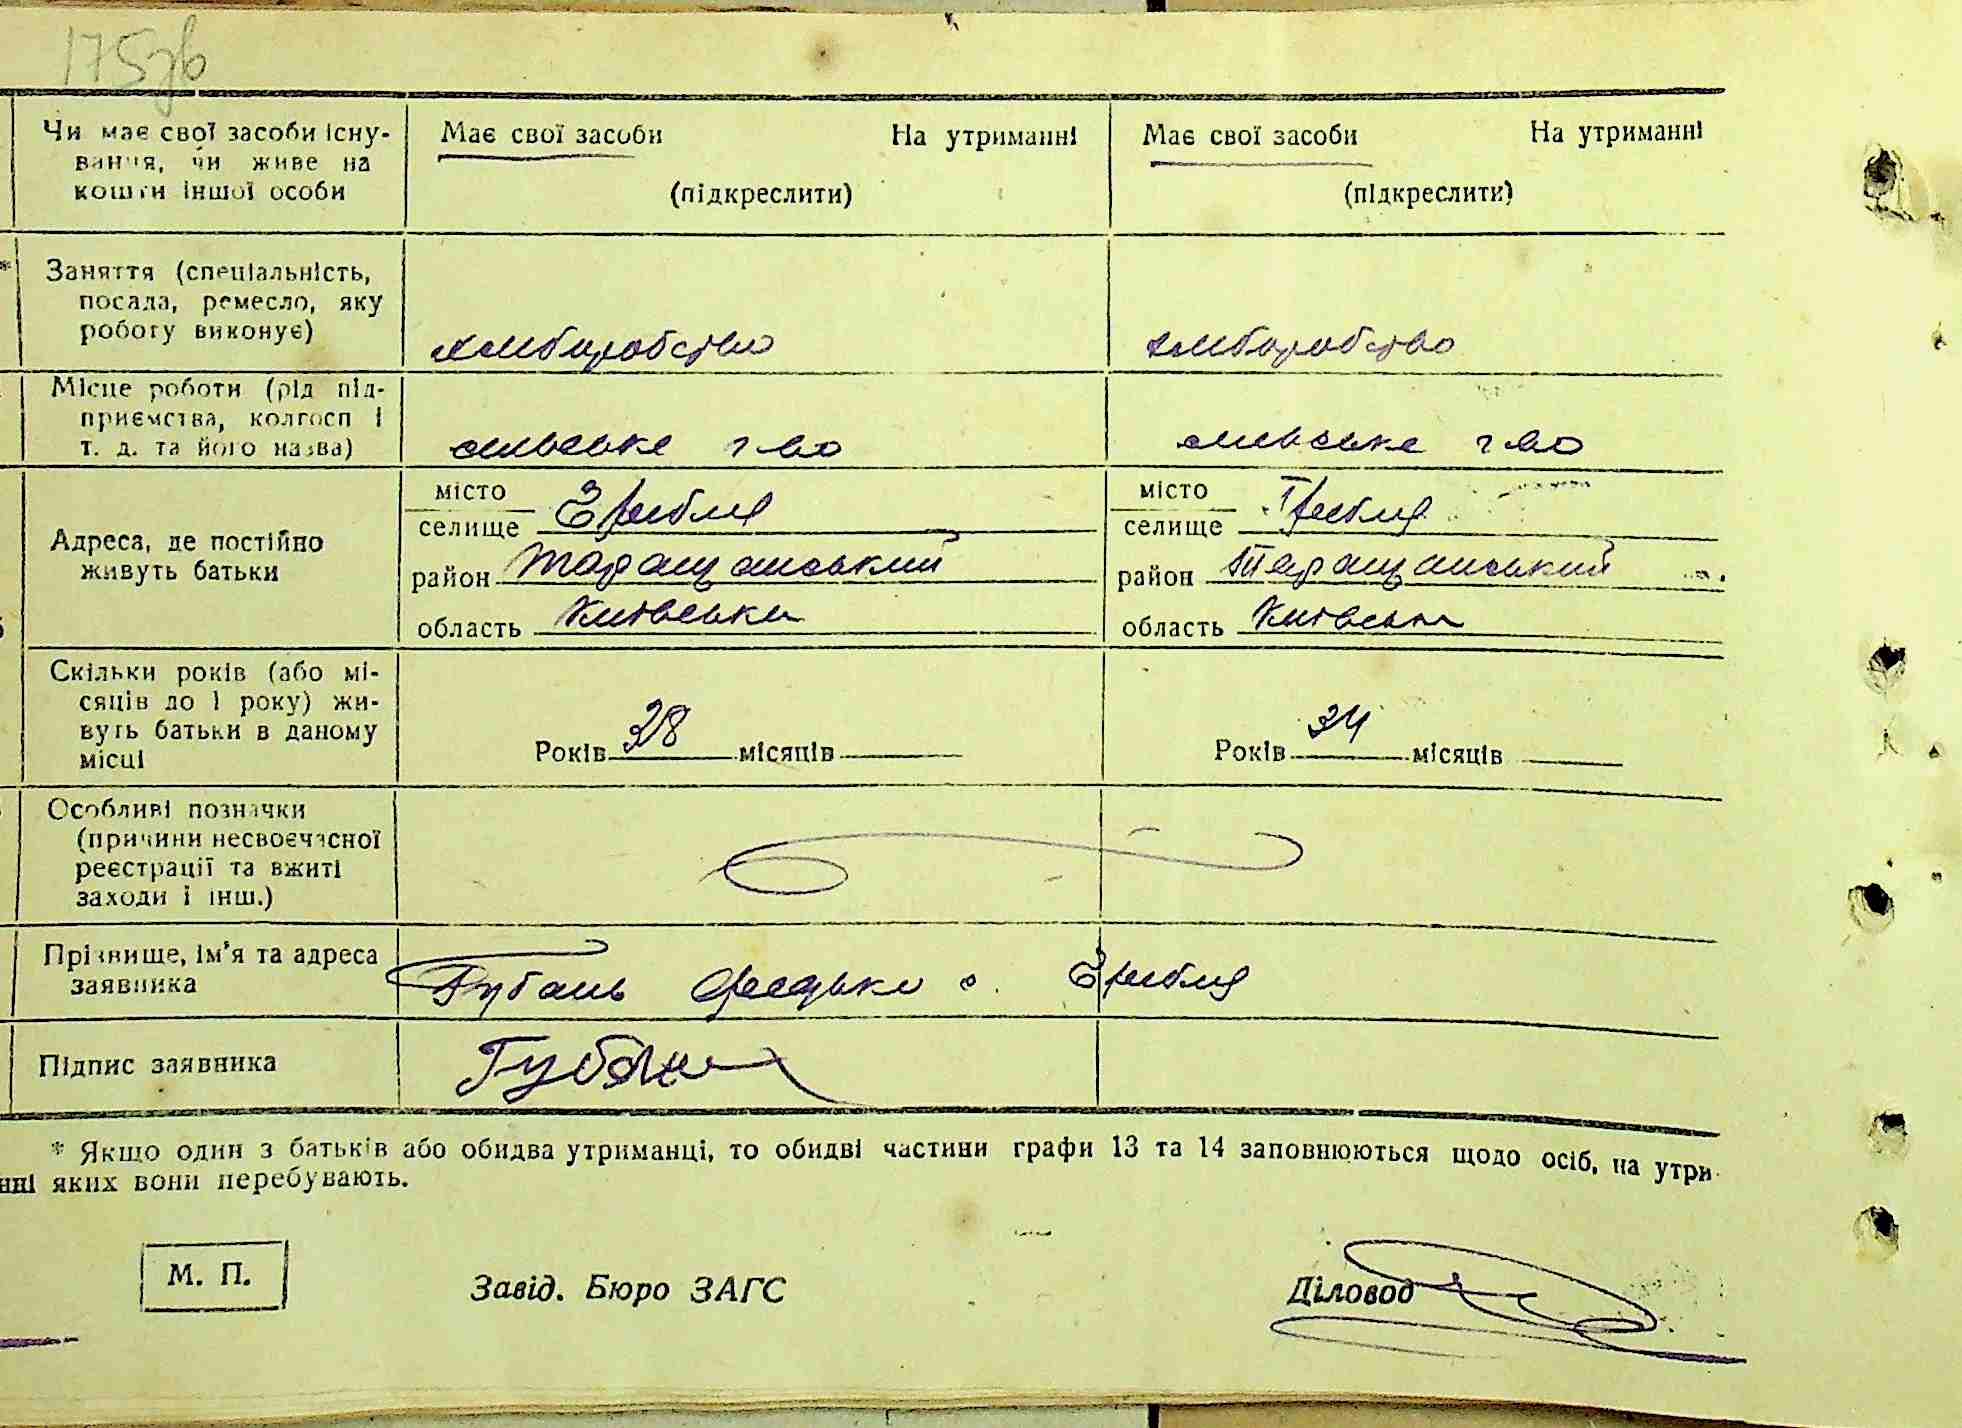 175зв
Чи має свої засоби існу-
вання, чи живе на
кошти іншої особи
Має свої засоби На утриманні
(підкреслити)
Має свої засоби На утриманні
(підкреслити)
* Заняття (спеціальність,
посада, ремесло, яку
роботу виконує)
хліборобство
хліборобство
Місце роботи (рід під-
приємства, колгосп і
т. д. та його назва)
сільське г-во
сільське г-во
Адреса, де постійно
живуть батьки
місто
селище Гребля
район Таращанський
область Київська
місто
селище Гребля
район Таращанський
область Київська
Скільки років (або мі-
сяців до 1 року) жи-
вуть батьки в даному
місці
Років 38 місяців
Років 34 місяців
Особливі позначки
(причини несвоєчасної
реєстрації та вжиті
заходи і інш.)
Прізвище, ім'я та адреса
заявника
Губань Федько с. Гребля
Підпис заявника
Губань
* Якщо один з батьків або обидва утриманці, то обидві частини графи 13 та 14 заповнюються щодо осіб, на утри-
нні яких вони перебувають.
М. П.
Завід. Бюро ЗАГС
Діловод